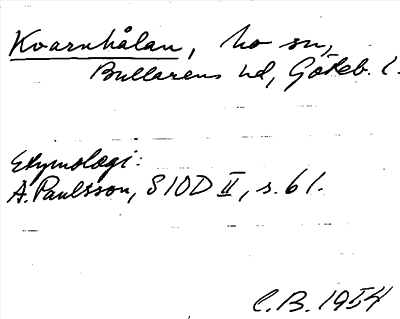 Kvarnhålan, ho sn,
Bullarens hd, Göteb. l.
Etymologi:
A. Paulsson, SIOD II, s. 61.
C.B. 1954